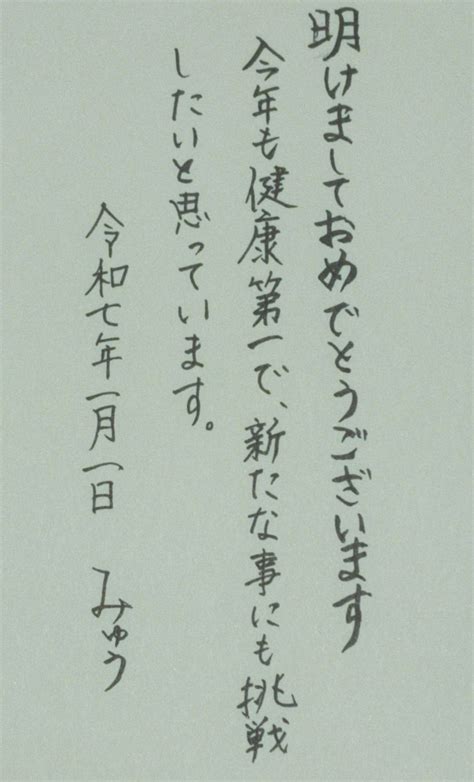 明けましておめでとうございます
今年も健康第一で、新たな事にも挑戦
したいと思っています。
令和七年一月一日 みゅう